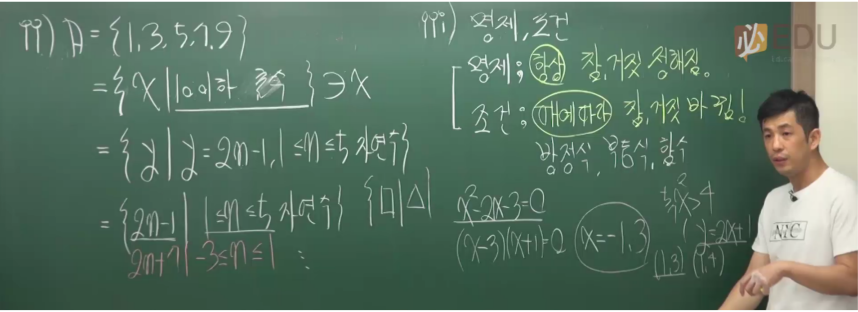 ii) A = {1, 3, 5, 7, 9}
= {x | 10이하 홀수} ∋ x
= {y | y = 2n-1, 1 ≤ n ≤ 5 자연수}
= {2n-1 | 1 ≤ n ≤ 5 자연수} {□|△}
2n+7 | -3 ≤ n ≤ 1
⋮
iii) 명제, 조건
명제 ; 항상 참, 거짓 정해짐.
조건 ; x에 따라 참, 거짓 바뀜!
방정식, 부등식, 함수
x²-2x-3=0
(x-3)(x+1)=0
x=-1, 3
x²>4
y=2x+1
(1,3) (1,4)
必 EDU
NYC